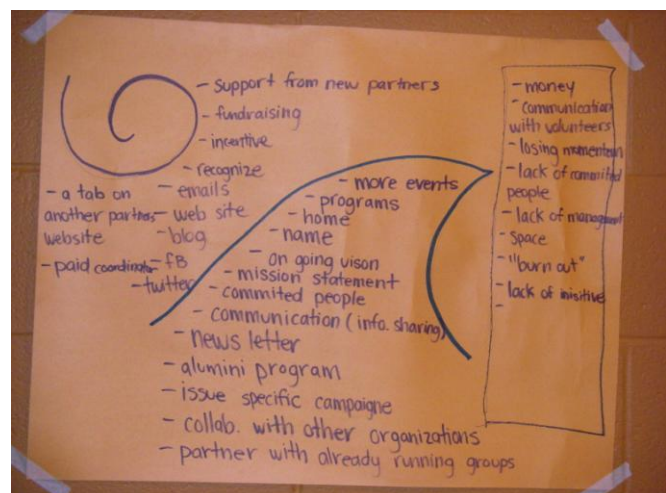 - support from new partners
- fundraising
- incentive
- recognize
- emails
- web site
- blog
- FB
- twitter
- a tab on
another partners
website
- paid coordinator
- more events
- programs
- home
- name
- on going vison
- mission statement
- commited people
- communication (info. sharing)
- news letter
- alumini program
- issue specific campaigne
- collab. with other organizations
- partner with already running groups
- money
- communication
with volunteers
- losing momentum
- lack of committed
people
- lack of management
- space
- "burn out"
- lack of inisitive
-